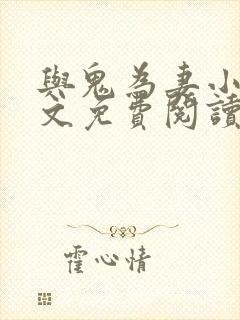 與鬼為妻小
文免費閱讀
霍心情